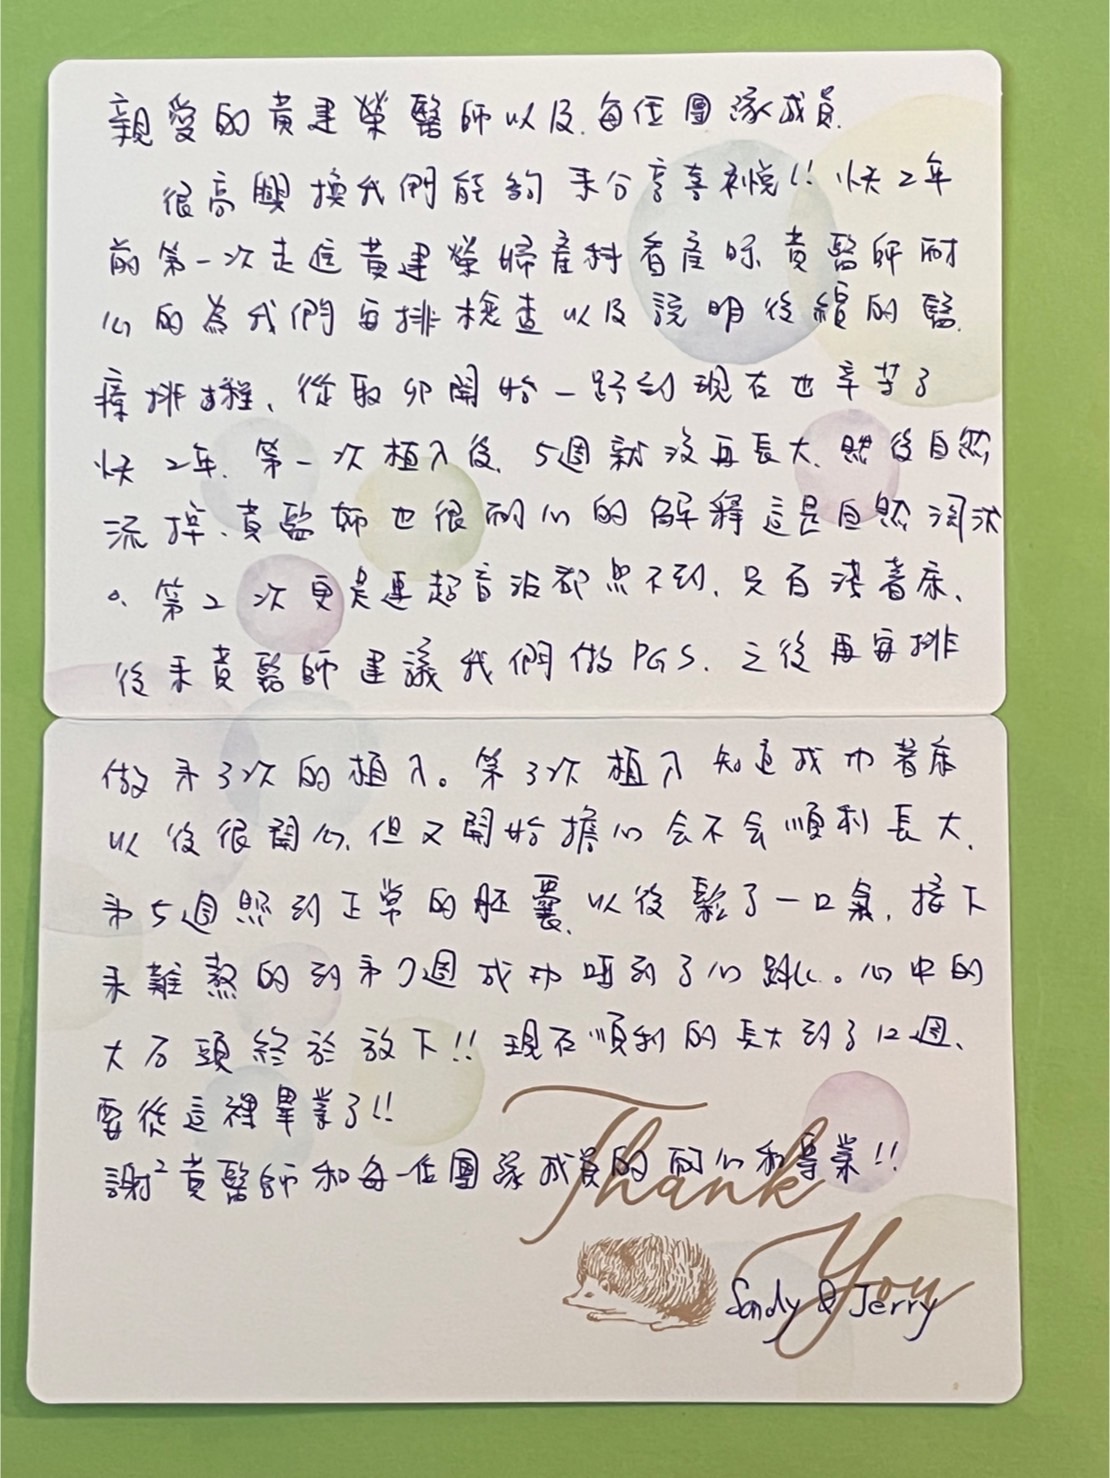 親愛的黃建榮醫師以及每位團隊成員.
很高興換我們能夠來分享喜悅!! 快2年
前第一次走進黃建榮婦產科看產昹黃醫師耐
心的為我們安排檢查以及說明後續的醫
療排程、從取卵開始一路到現在也辛苦了
快2年. 第一次植入後, 5週就沒再長大、然後自然
流掉、黃醫師也很耐心的解釋這是自然淘汰
。第2次更是連超音波都照不到、只有淺著床、
後來黃醫師建議我們做PGS. 之後再安排
做第3次的植入。第3次植入知道成功著床
以後很開心, 但又開始擔心会不会順利長大.
第5週照到正常的胚囊, 以後鬆了一口氣, 接下
來難熬的到第7週成功照到了心跳。心中的
大石頭終於放下!! 現在順利的長大到了12週、
要從這裡畢業了!!
謝²黃醫師和每一位團隊成員的耐心和專業!!
Thank
You
Sandy & Jerry